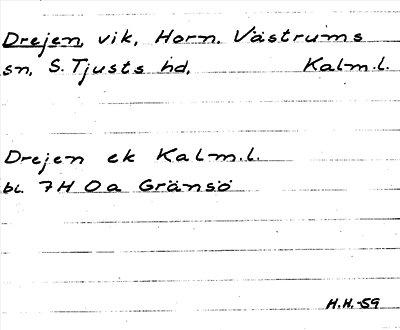 Drejen, vik, Horn. Västrums
sn, S. Tjusts hd, Kalm.l.
Drejen ek Kalm.l.
bl. 7H 0a Gränsö
H.H.-59